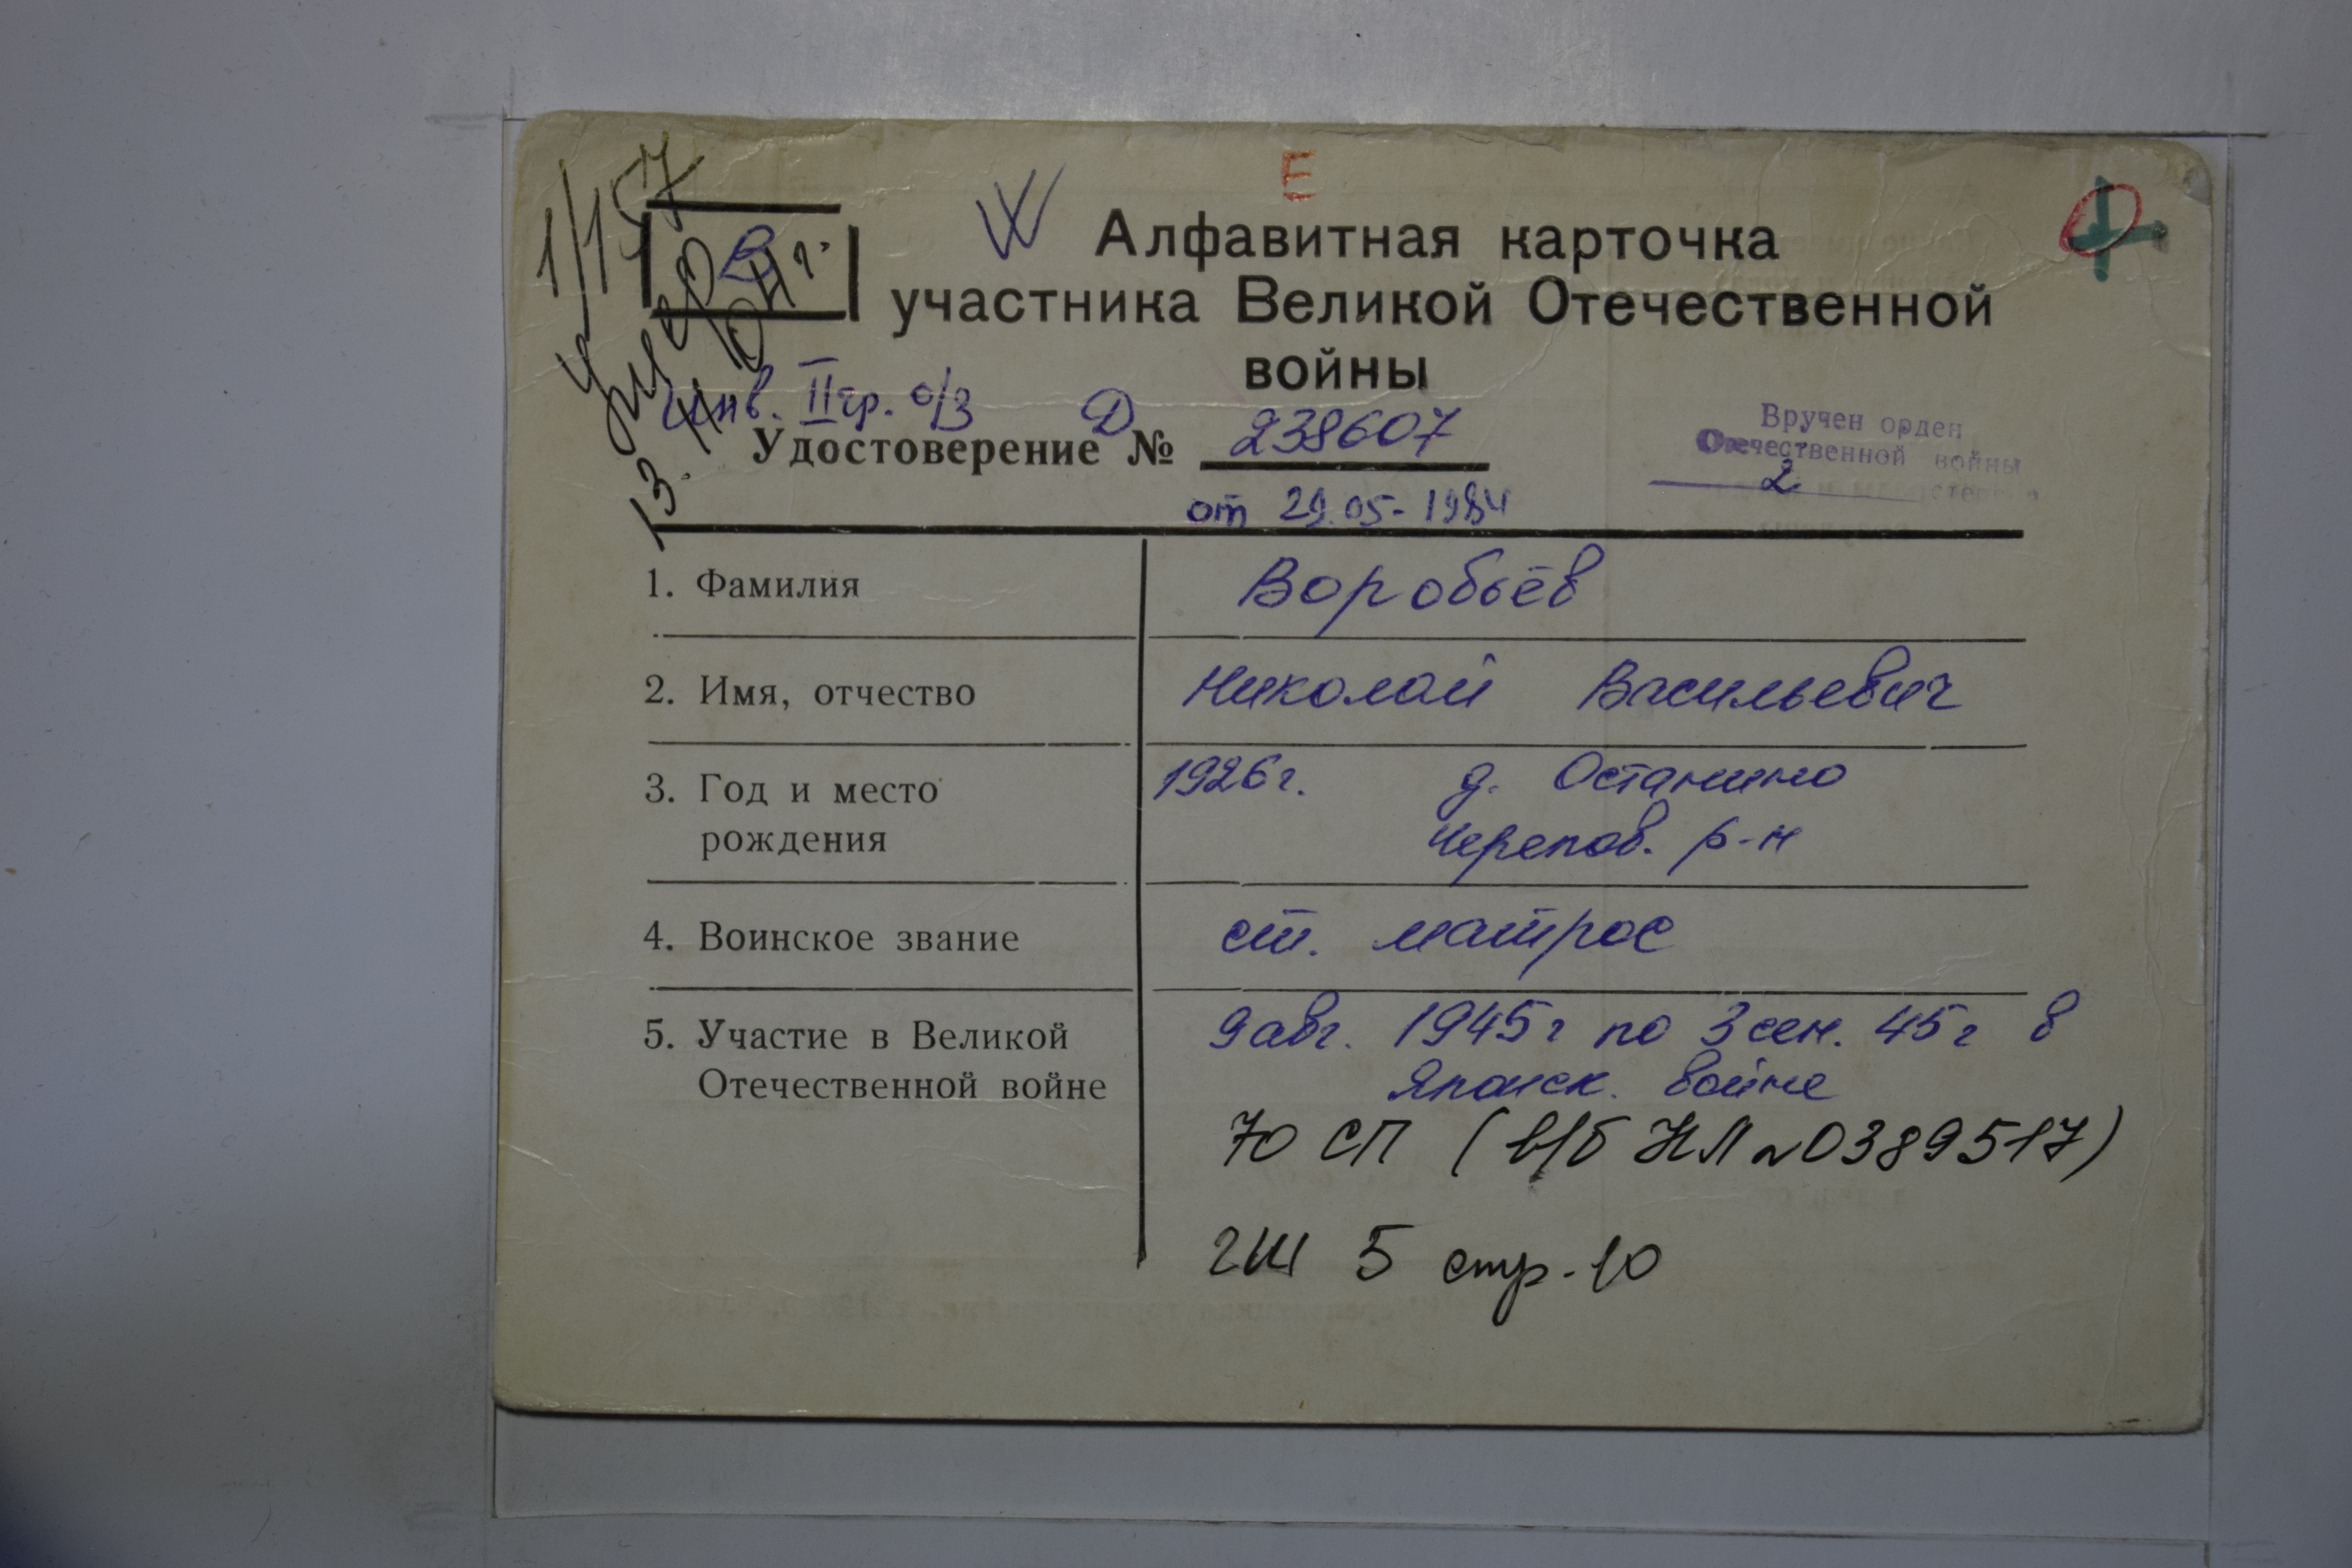 1/157
умер
13.11.04 г.
В
W
Е
Алфавитная карточка
участника Великой Отечественной
войны
Инв. II гр. о/з
Удостоверение Д № 238607
от 29.05-1984
Вручен орден
Отечественной войны
2
1. Фамилия Воробьёв
2. Имя, отчество Николай Васильевич
3. Год и место 1926г. д. Останино
рождения Черепов. р-н
4. Воинское звание ст. матрос
5. Участие в Великой 9 авг. 1945г по 3 сен. 45г в
Отечественной войне Японск. войне
70 СП (в/б НЛ № 0389517)
гш 5 стр. 10